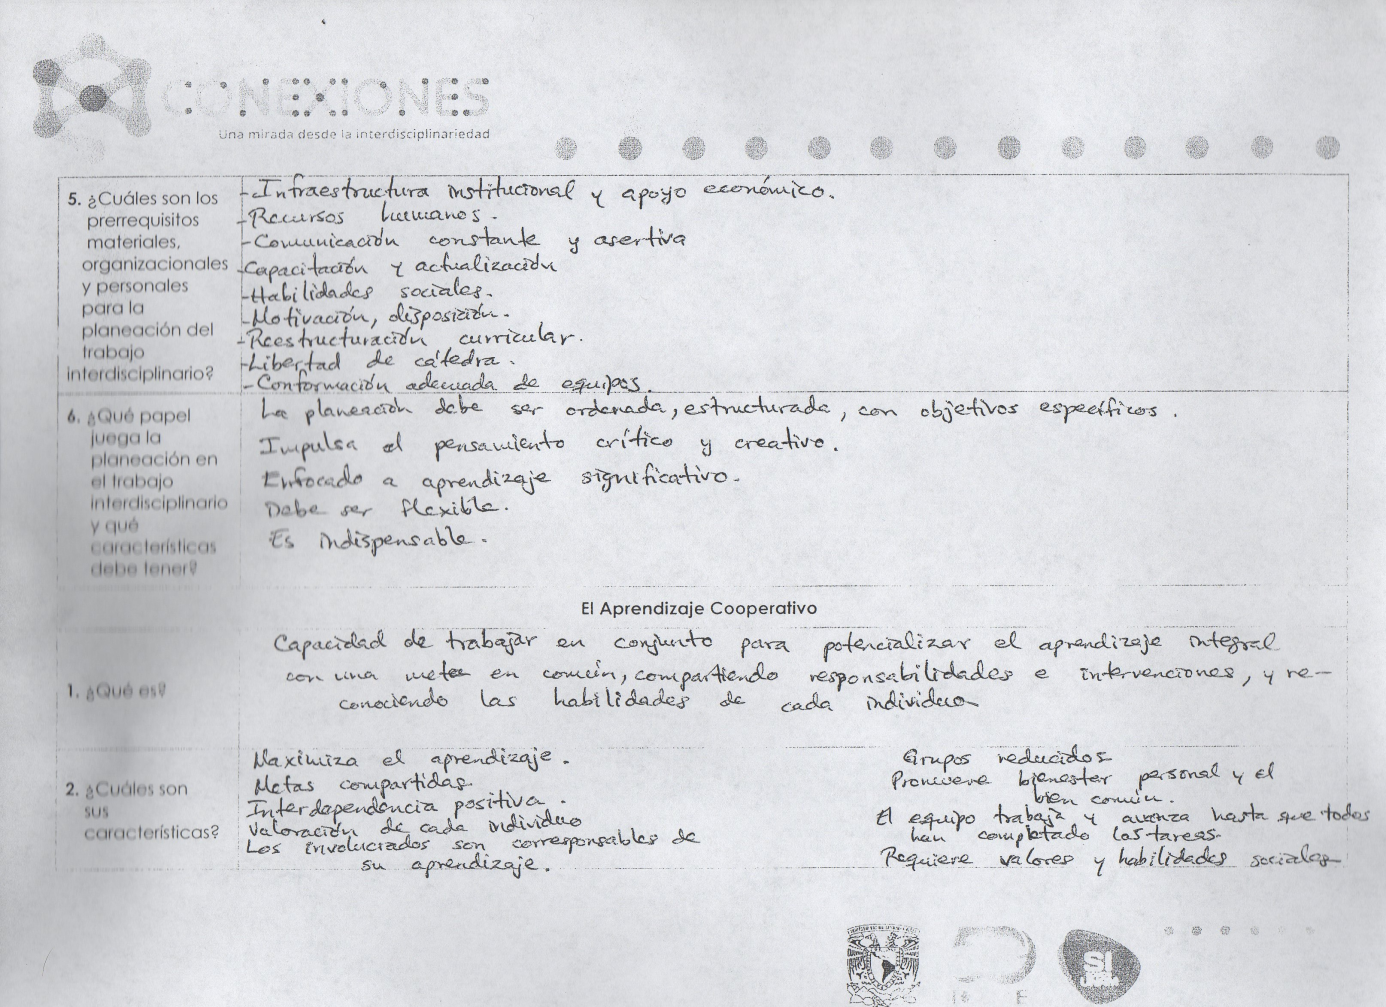 CONEXIONES
Una mirada desde la interdisciplinariedad
5. ¿Cuáles son los
prerrequisitos
materiales,
organizacionales
y personales
para la
planeación del
trabajo
interdisciplinario?
-Infraestructura institucional y apoyo económico.
-Recursos humanos.
-Comunicación constante y asertiva
-Capacitación y actualización
-Habilidades sociales.
-Motivación, disposición.
-Reestructuración curricular.
-Libertad de cátedra.
-Conformación adecuada de equipos.
6. ¿Qué papel
juega la
planeación en
el trabajo
interdisciplinario
y qué
características
debe tener?
La planeación debe ser ordenada, estructurada, con objetivos específicos.
Impulsa el pensamiento crítico y creativo.
Enfocado a aprendizaje significativo.
Debe ser flexible.
Es indispensable.
El Aprendizaje Cooperativo
1. ¿Qué es?
Capacidad de trabajar en conjunto para potencializar el aprendizaje integral
con una meta en común, compartiendo responsabilidades e intervenciones, y re-
conociendo las habilidades de cada individuo
2. ¿Cuáles son
sus
características?
Maximiza el aprendizaje.
Metas compartidas
Interdependencia positiva.
Valoración de cada individuo
Los involucrados son corresponsables de
su aprendizaje.
Grupos reducidos
Promueve bienestar personal y el
bien común.
El equipo trabaja y avanza hasta que todos
han completado las tareas.
Requiere valores y habilidades sociales
SI